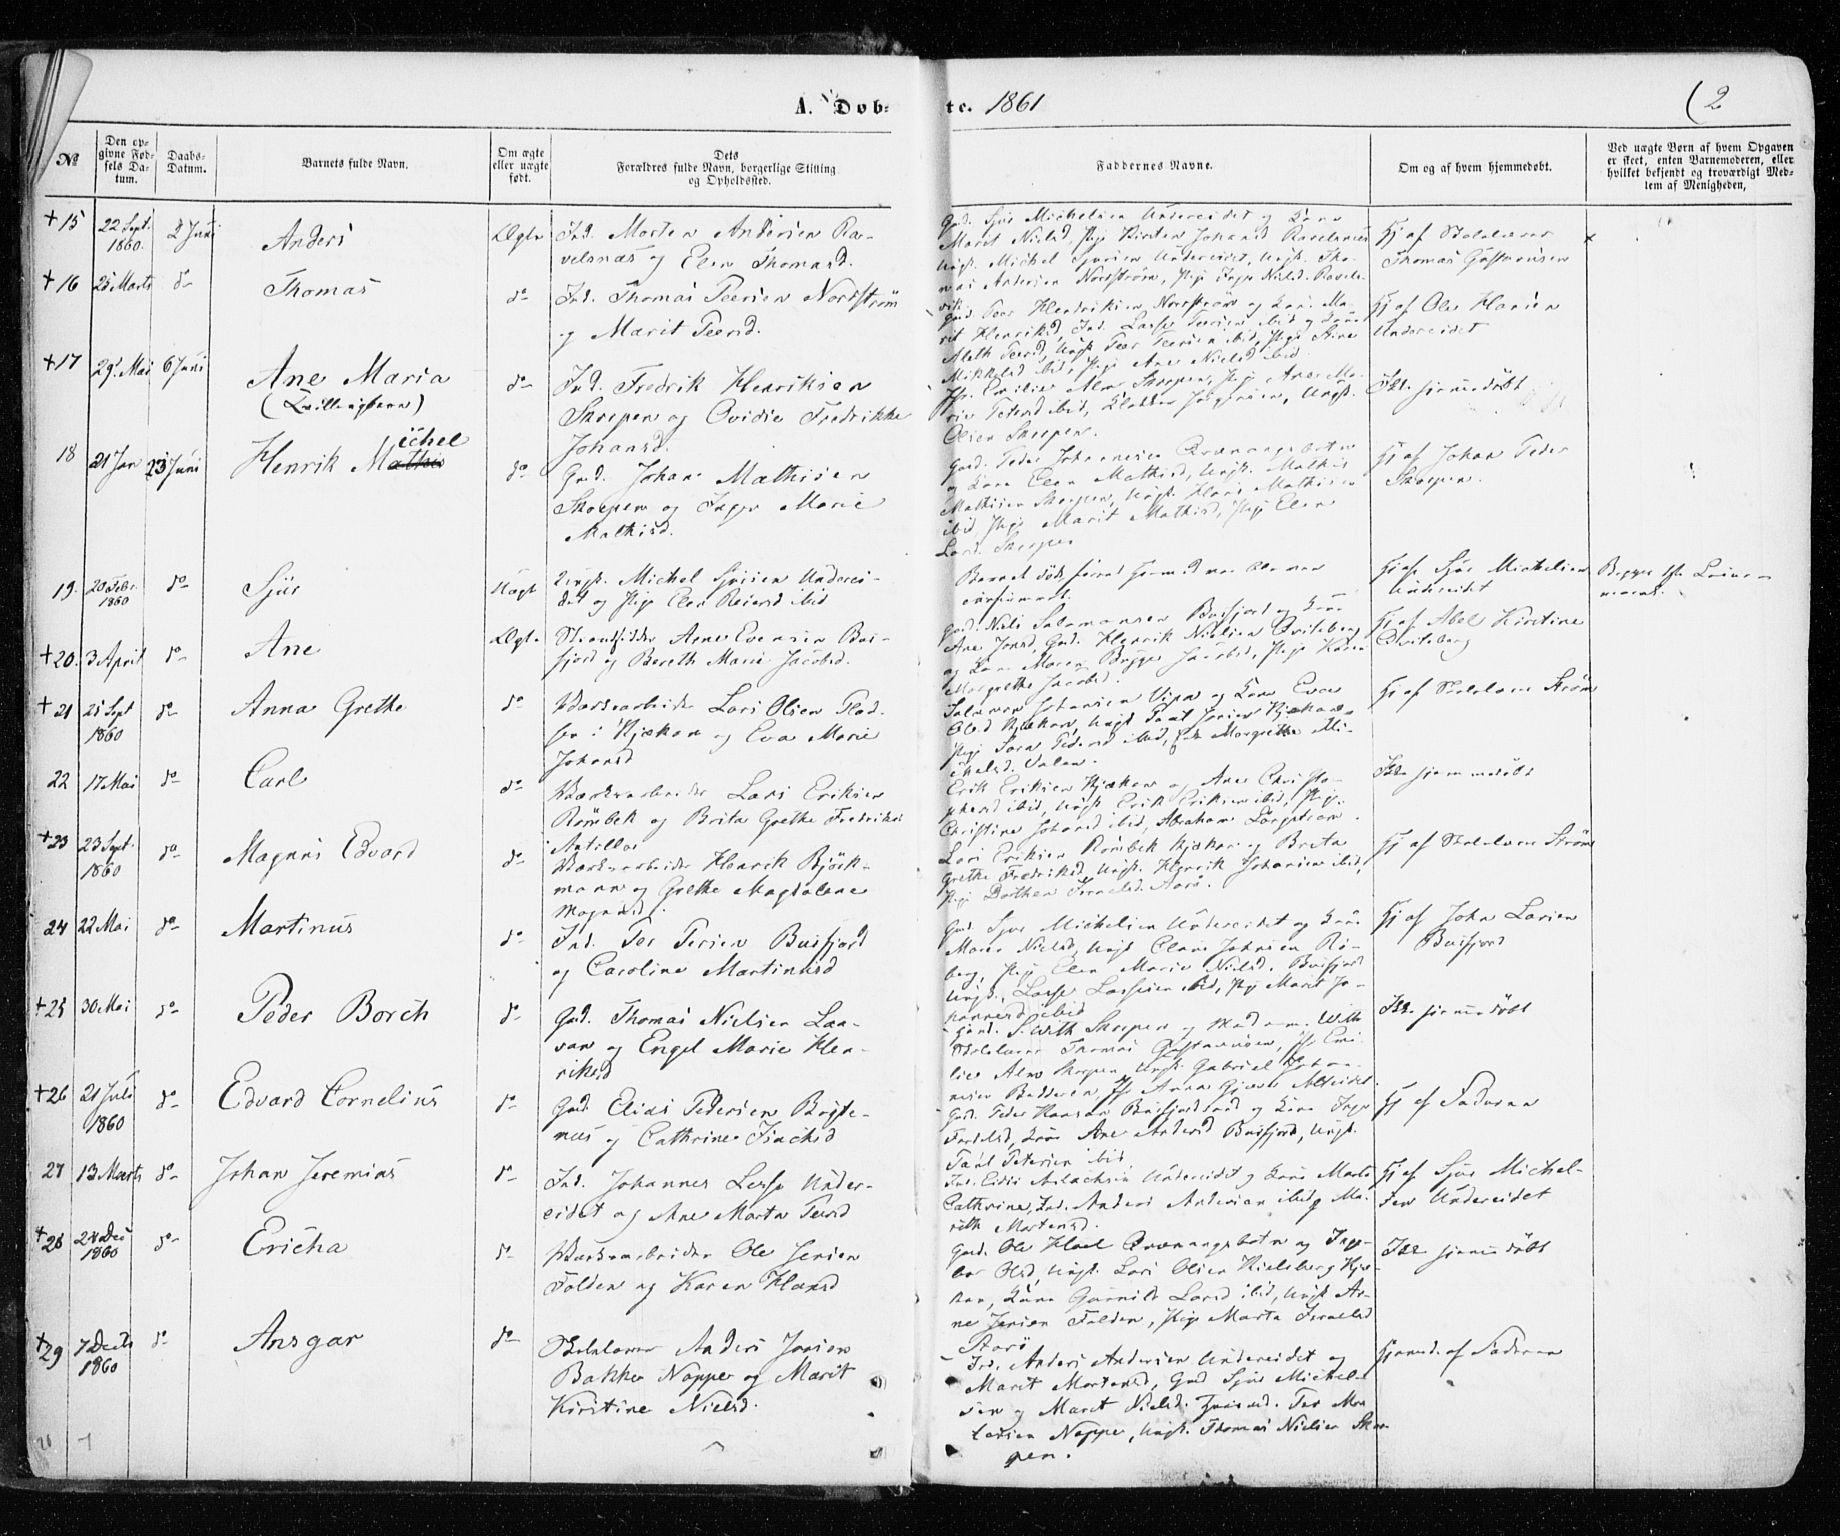 A. Døb-
te. 1861
(2
№
Den op-
givne Fød-
sels Da-
tum.
Daabs-
Datum.
Barnets fulde Navn.
Om ægte
eller uægte
født.
Dets
Forældres fulde Navn, borgerlige Stilling
og Opholdssted.
Faddernes Navne.
Om og af hvem hjemmedøbt.
Ved uægte Børn af hvem Opgaven
er skeet, enten Barnemoderen, eller
hvilket bekjendt og troværdigt Med-
lem af Menigheden,
+15
22 Sept.
1860.
2 Juni
Anders
Ægte
Ind. Morten Andersen Ra-
velsnæs og Elen Thomasd.
Gmd. Sjur Michelsen Undereidet og Kone
Marit Nielsd, Pige Kirsten Johansd Ravelsnæs
Ungk. Michel Sjursen Undereidet, Ungk. Tho-
mas Andersen Nordstrøm, Pige Inger Nielsd. Ravels-
Hj af Skolelærer
Thomas Gustavusen
+16
25 Marts
do
Thomas
do
Ind. Thomas Peersen Nordstrøm
og Marit Peersd.
Gmd. Peer Hendriksen Nordstrøm og Kone Ma-
rit Henriksd, Ind. Lasse Peersen ibid og Kone
Math Peersd, Ungk Peer Peersen ibid, Pige Stine
Mikkelsd ibid, Pige Ane Nielsd ibid.
Hj af Ole Hansen
Undereidet
+17
29 Mai
6 Juni
Ane Maria
(Tvillingbarn)
do
Ind. Fredrik Henriksen
Skorpen og Ovidie Fredrikke
Johansd.
Jfr. Emilie Alm Skorpen, Pige Ane Ma-
rie Petersd ibid, Klokker Jørgensen, Ungk.
Olsen Skorpen.
Ikke hjemmedøbt
18
21 Jan
23 Juni
Henrik Michel
do
Gmd. Johan Mathisen
Skorpen og Inger Marie
Mathisd.
Gmd. Peder Johannesen Qvænangsbotn
og Kone Elen Mathisd, Ungk. Mathis
Mathisen Skorpen, Ungk. Hans Mathisen
ibid, Pige Marit Mathisd, Pige Elen
Larsd. Skorpen
Hj af Johan Peder
Skorpen.
19.
20 Febr.
1860
do
Sjur
Uægt
Ungk. Michel Sjursen Underei-
det og Pige Elen Reiersd ibid
Barnet døde
Hj af Sjur Michelsen
Undereidet
+20.
3 April
do
Ane
Ægte
Strandsidder Arne Evensen Bur-
fjord og Bereth Marie Jacobsd.
Gmd. Niels Salamonsen Burfjord og Kone
Ane Jonsd, Gmd. Henrik Nielsen Qviteberg
og Kone Maren Birgitte Jacobsd, Pige Karen
Margrethe Jacobsd.
Hj af Abel Kirstine
Qviteberg
+21
25 Sept
1860
do
Anna Grethe
do
Værksarbeider Lars Olsen Flad-
bo i Kjækan og Eva Marie
Johansd
Salamon Johansen Vina og Kone Eva
Olsd Kjækan, Ungk Paul Jonsen Kjækan
Pige Sara Pedersd ibid, Margrethe Mi-
chelsd. Valan.
Hj af Skolelærer Strøm
22
17 Mai
do
Carl
do
Værksarbeider Lars Eriksen
Rømbek og Brita Grethe Fredriksd
Antilla
Erik Eriksen Kjækan og Ane Christo-
phersd ibid, Ungk Erik Eriksen ibid, Pige
Christine Johansd ibid, Abraham Bergstrøm.
Ikke hjemmedøbt
+23
23 Sept.
1860
do
Magnus Edvard
do
Værksarbeider Henrik Bjørk-
mann og Grethe Magdalene
Magnusd.
Lars Eriksen Rømbek Kjækan og Brita
Grethe Fredriksd, Ungk. Henrik Johansen ibid,
Pige Dorthea Israelsd. Aarø.
Hj af Skolelærer Strøm
24
22 Mai
do
Martinus
do
Ind. Per Persen Burfjord
og Caroline Martinusd
Gmd Sjur Michelsen Undereidet og Kone
Maren Nielsd, Ungk Claus Johnsen Rø-
berg, Pige Elen Marie Nielsd. Burfjord
Ungk. Lasse Lassesen ibid, Pige Marit Jo-
hannesd ibid
Hj af John Larsen
Burfjord
+25
30 Mai
do
Peder Borch
do
Gmd. Thomas Nielsen Lar-
san og Engel Marie Hen-
riksd
Hand. S. With Skorpen og Madame With
Skolelærer Thomas Gustavusen, Jfr Emi-
lie Alm Skorpen, Ungk Gabriel Johan-
nesen Badderen, Jfr Anna Gjæver Alteidet
Ikke hjemmedøbt
+26
21 Juli
1860
do
Edvard Cornelius
do
Gmd. Elias Pedersen Bugte-
næs og Cathrine Isachsd
Gmd. Peder Hansen Burfjordnæs og Kone Inger
Fordelsd, Kone Ane Andersd Burfjord, Ungk.
Paul Petersen ibid
Hj af Faderen
27
13 Marts
do
Johan Jeremias
do
Ind. Johannes Lasse Under-
eidet og Ane Marta Peersd
Ind. Eidis Aslachsen Undereidet og Kone Marta
Cathrine, Ind. Anders Andersen ibid og Ma-
rith Mortensd.
Hj af Sjur Michel-
sen Undereidet
+28
24 Dec
1860
do
Ericha
do
Værksarbeider Ole Jensen
Folden og Karen Hansd
Gmd. Ole Hael Qvænangsbotn og Inge-
bor Olsd, Ungk. Lars Olsen Hielsberg Kjæ-
kan, Kone Gunnild Larsd ibid, Ungk Ar-
ne Jensen Folden, Pige Marta Israelsd
Aarø
Ikke hjemmedøbt
+29
7 Decbr
1860
do
Ansgar
do
Skolelærer Anders Jonsen
Bakken Noppen og Marit
Kirstine Nielsd.
Ind. Anders Andersen Undereidet og
Marit Mortensd, Gmd Sjur Michel-
sen og Maret Nielsd. Per Mor-
tensen Noppen, Ungk. Thomas Nielsen Skor-
pen.
Hjemmed. af Faderen